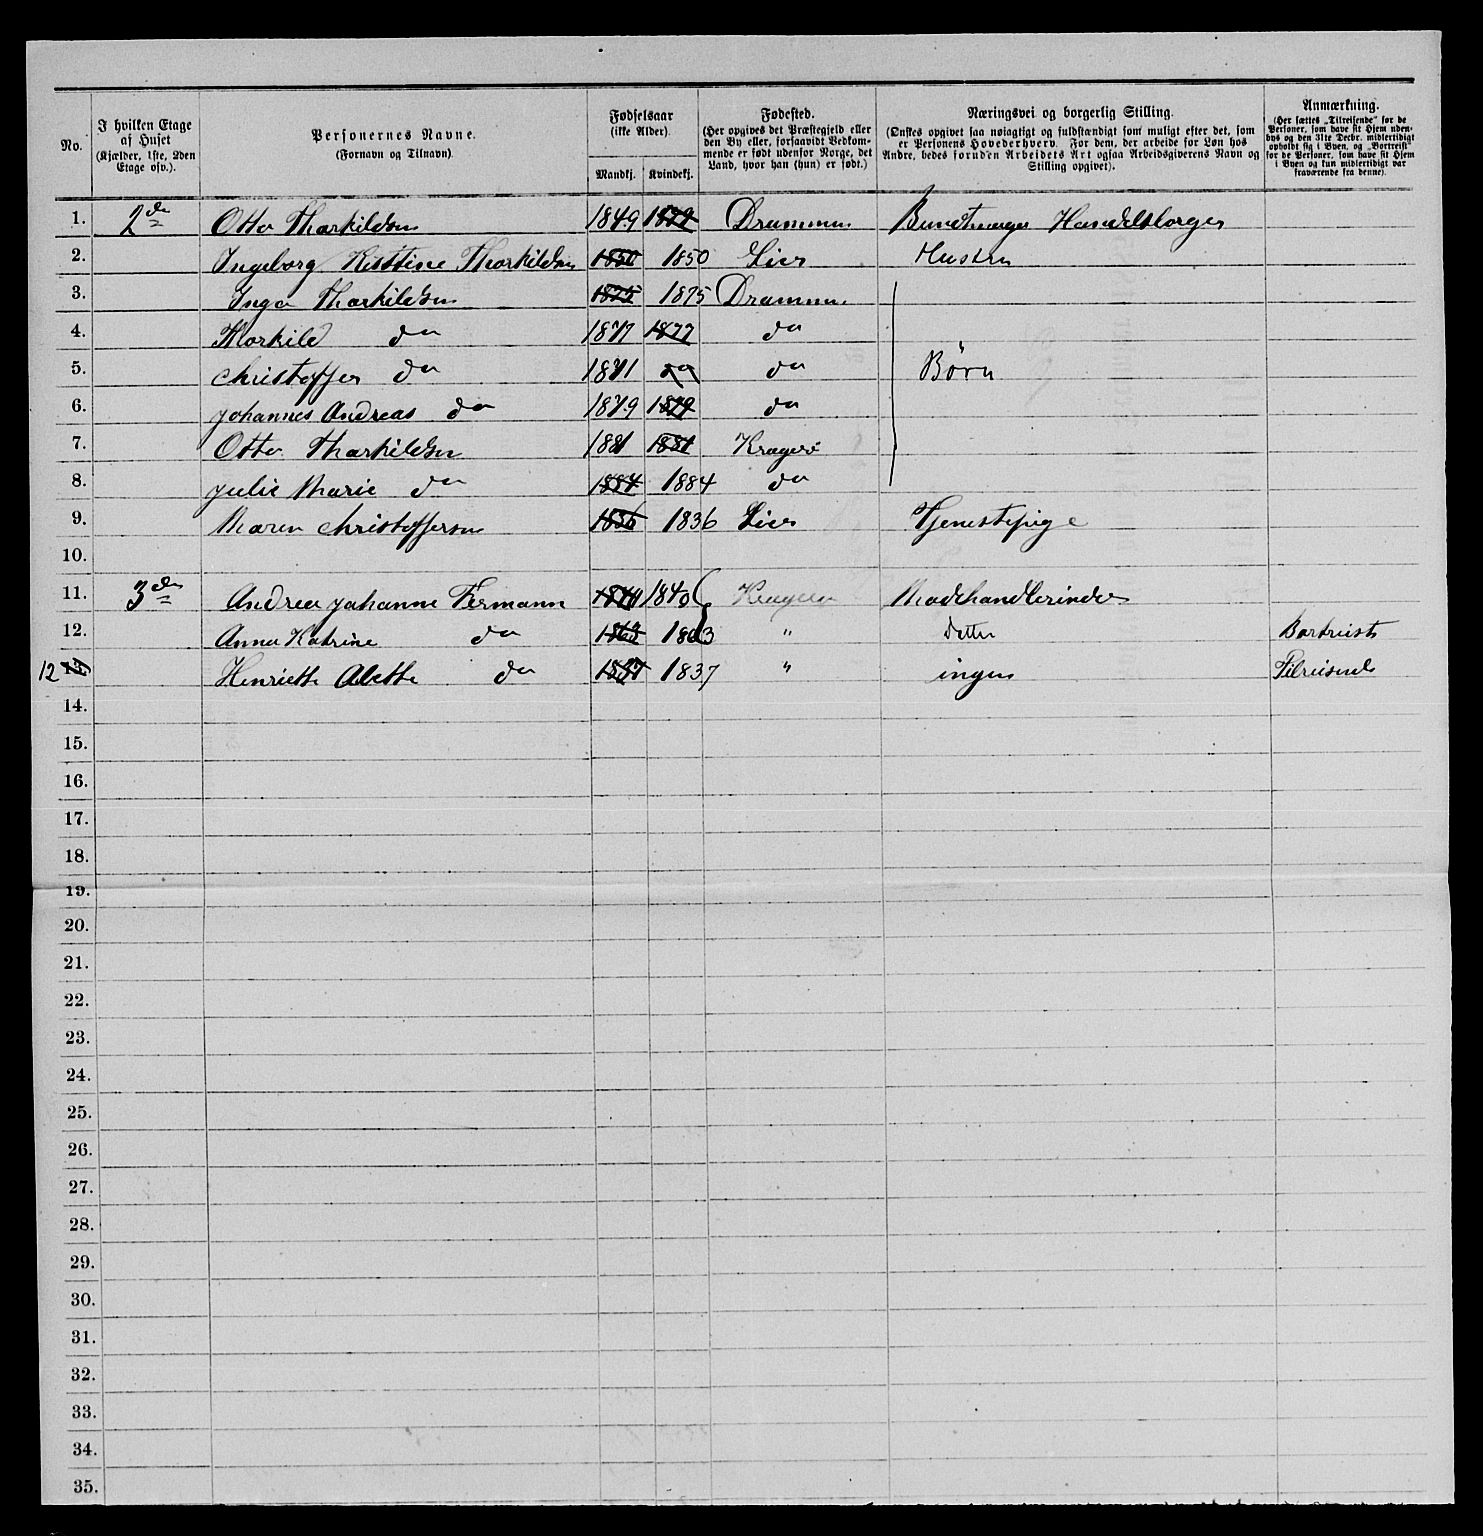 No.
I hvilken Etage af Huset (Kjælder, 1ste, 2den Etage osv.).
Personernes Navne. (Fornavn og Tilnavn)
Fødselsaar (ikke Alder).
Mandkj. Kvindekj.
Fødested. (Her opgives det Præstegjeld eller den By eller, forsaavidt Vedkommende er født udenfor Norge, det Land, hvor han (hun) er født.)
Næringsvei og borgerlig Stilling. (Ønskes opgivet saa nøiagtigt og fuldstændigt som muligt efter det, som er Personens Hovederhverv. For dem, der arbeide for Løn hos Andre, bedes foruden Arbeidets Art ogsaa Arbeidsgiverens Navn og Stilling opgivet).
Anmærkning. (Her sættes „Tilreisende“ for de Personer, som have sit Hjem udenbys og den 31te Decbr. midlertidigt opholdt sig i Byen, og „Bortreist“ for de Personer, som have sit Hjem i Byen og kun midlertidigt var fraværende fra denne).
1. 2de Otto Thorkildsen 1849 Drammen Bundtmager Handelsborger
2. Ingeborg Kisttine Thorkildsen 1850 1850 Lier Hustru
3. Inga Thorkildsen 1875 1875 Drammen
4. Thorkild do 1877 1877 do
5. Christoffer do 1871 do do Børn
6. Johannes Andreas do 1879 1879 do
7. Otto Thorkildsen 1881 1881 Kragerø
8. Julie Marie do 1884 1884 do
9. Maren Christoffersen 1836 1836 Lier Tjenestepige
10.
11. 3de Andrea Johanne Fermann 1840 1840 Kragerø Modehandlerinde
12. Anna Katrine do 1863 1863 " Datter Bortreist
12 13. Henriette Alette do 1837 1837 " ingen Tilreisende
14.
15.
16.
17.
18.
19.
20.
21.
22.
23.
24.
25.
26.
27.
28.
29.
30.
31.
32.
33.
34.
35.